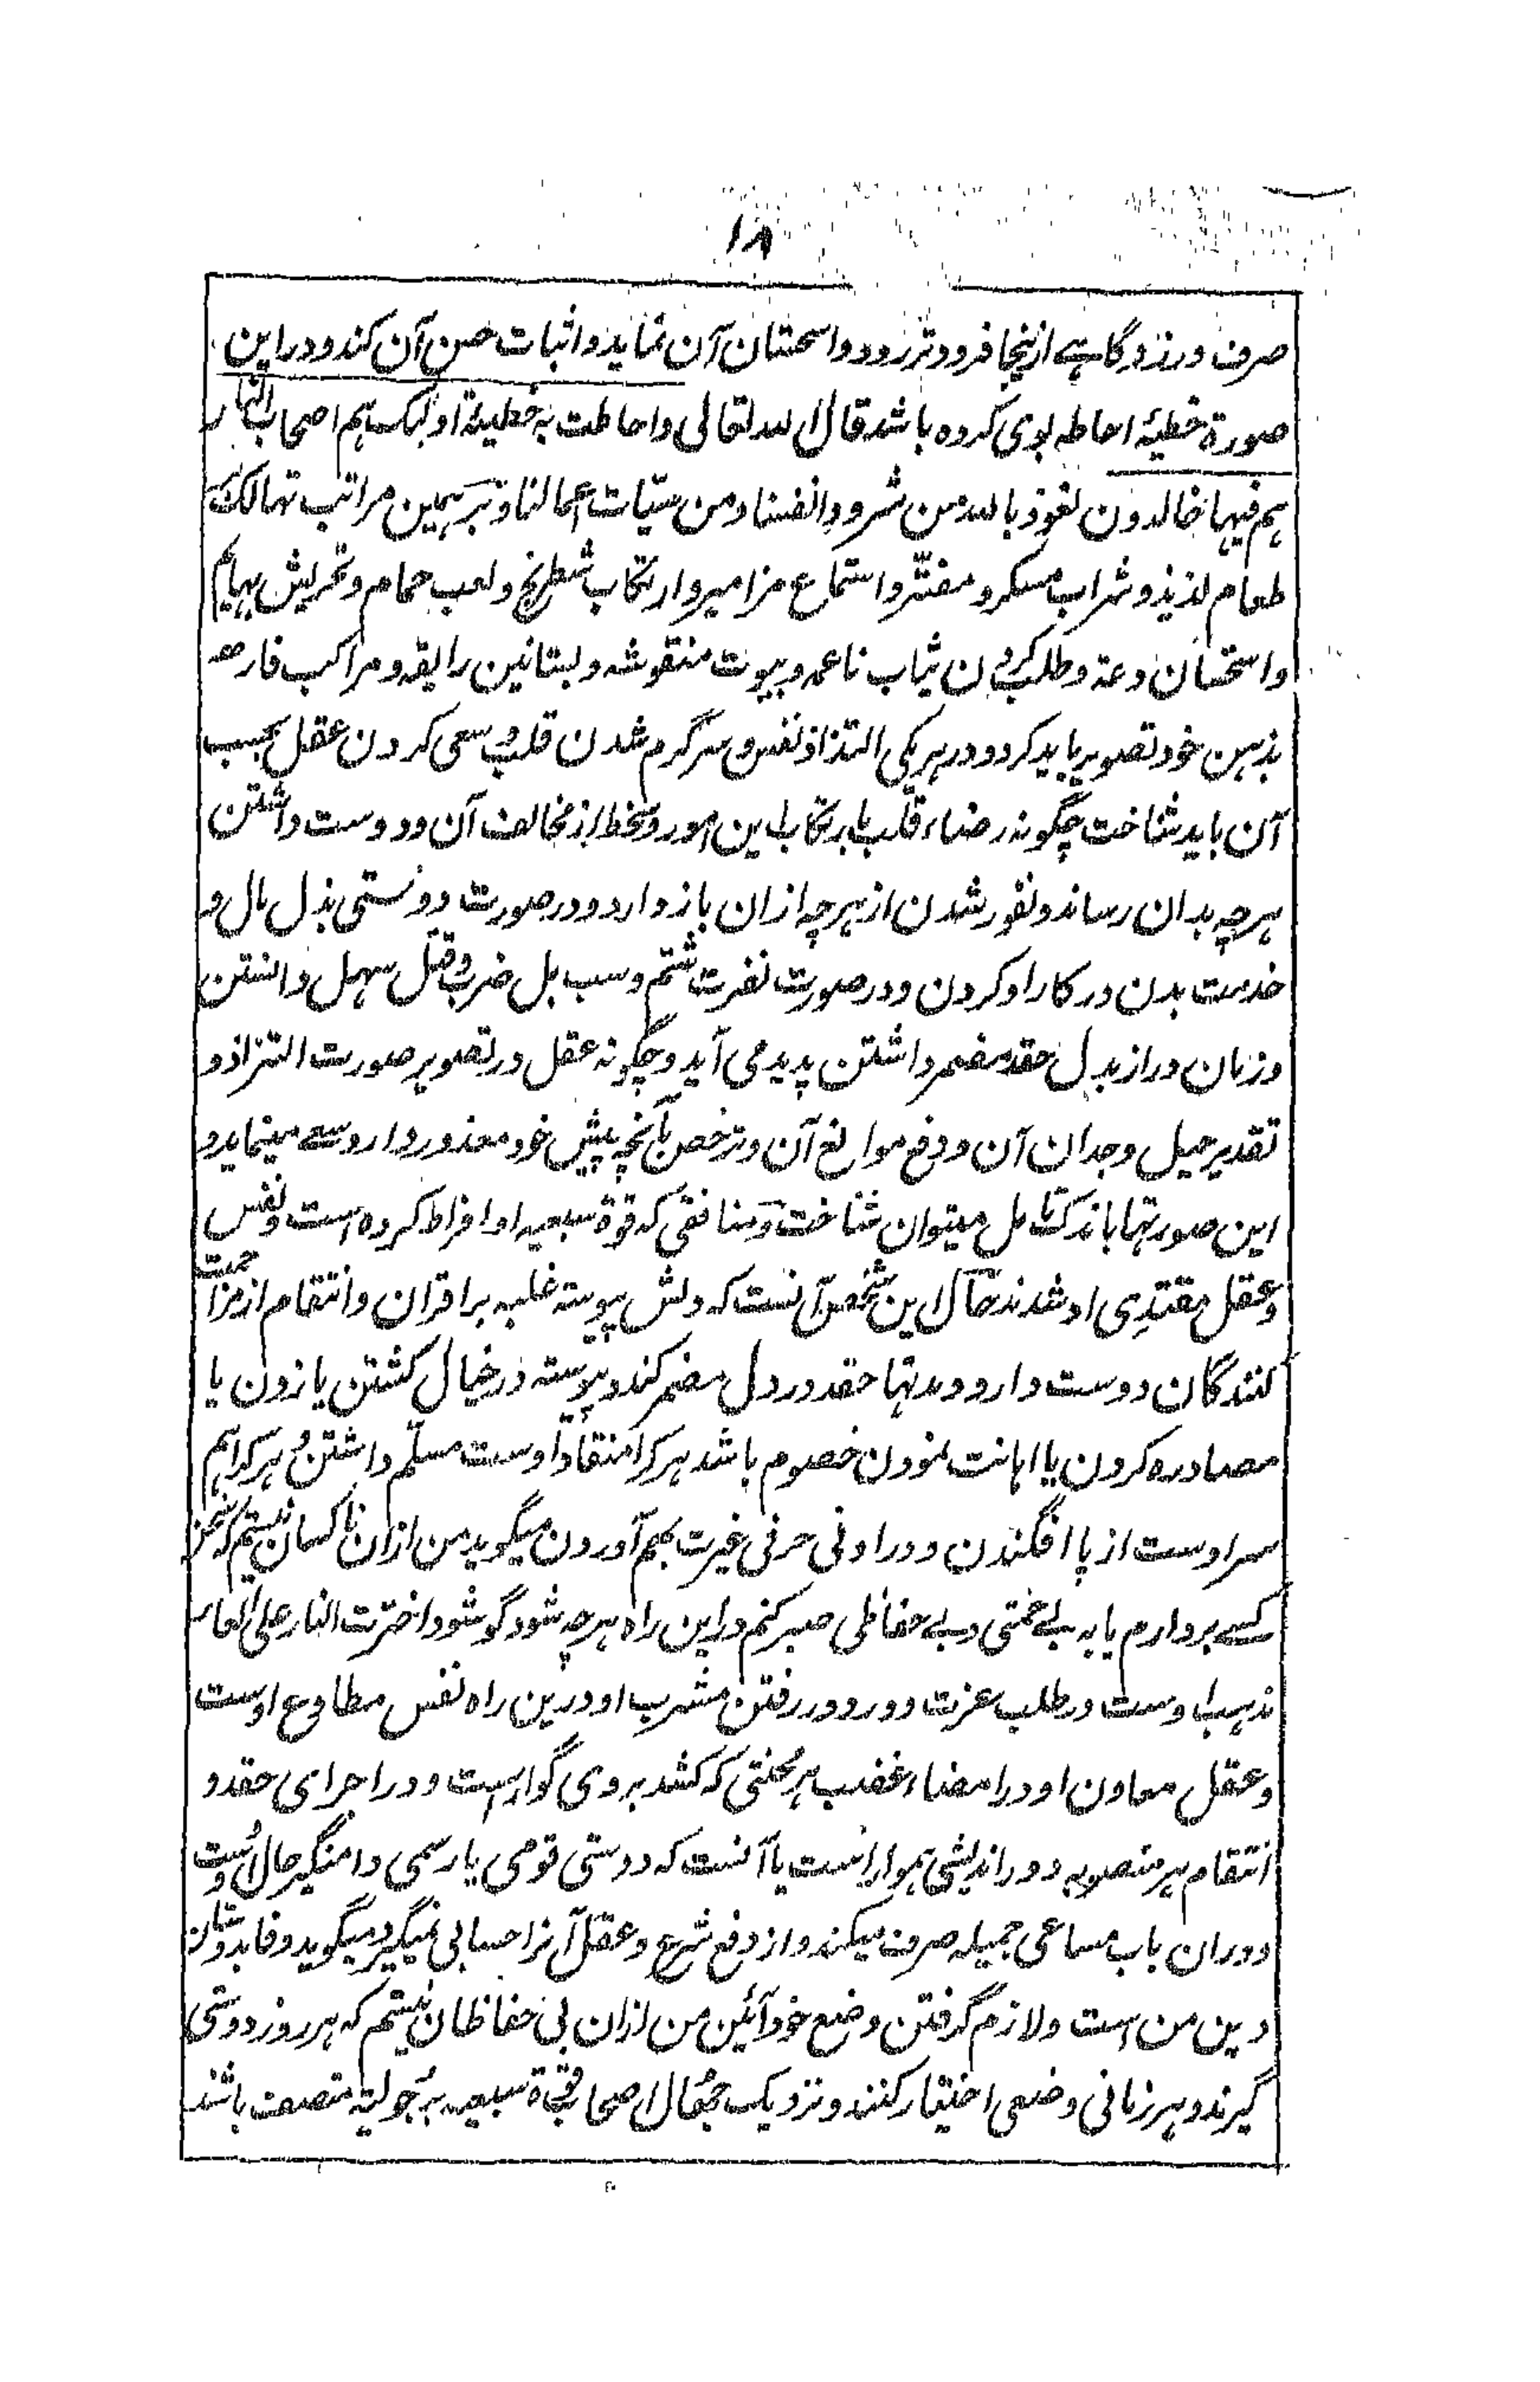 ۱۸
صرف ورزد و گاہے ازینجا فرودتر رود و استحسان آن نماید و اثبات حسن آن کند و در این
صورة خطیئه احاطه بوی کرده باشد قال الله تعالی و احاطت به خطیئة اولئک هم اصحاب النار
هم فیها خالدون نعوذ بالله من شرور انفسنا و من سیّات اعمالنا و بر همین مراتب تهالک
طعام لذیذ و شراب مسکر و مفتّر و استماع مزامیر و ارتکاب شطرنج و لعب حمام و تحریش بهایم
و استحسان دعة و طلب کردن ثیاب ناعمه و بیوت منقوشه و بساتین رایقه و مراکب فارهه
بذهن خود تصویر باید کرد و در هر یکی التذاذ نفس و سرگرم شدن قلب و سعی کردن عقل بحسب
آن باید شناخت چگونه رضاء قلب بارتکاب این امور و سخط از مخالف آن و دوست داشتن
هر چه بدان رساند و نفور شدن از هر چه ازان باز دارد و در صورت دوستی بذل مال و
خدمت بدن در کار او کردن و در صورت نفرت شتم و سب بل ضرب و قتل سهل دانستن
و زمان دراز بدل حقد مضمر داشتن پدید می آید و چگونه عقل در تصویر صورت التذاذ و
تقدیر حیل وجدان آن و دفع موانع آن و ترخص بآنچه پیش خود معذور دارد سعے مینماید و
این صورتها باندک تامل میتوان شناخت و منافقی که قوة سبعیه او افراط کرده است و نفس
و عقل مقتدِی او شدند حال این شخص آنست که دلش پیوسته غلبه بر اقران و انتقام از مزاحمت
کنندگان دوست دارد و مدتها حقد در دل مضمر کند و پیوسته در خیال کشتن یا زدن یا
مصادره کردن یا اهانت نمودن خصوم باشد هر کرا منقاد اوست مسلّم داشتن و هر کرا هم
سر اوست از پا افگندن و در ادنی حرفی غیرت بهم آوردن میگوید من ازان ناکسان نیستم که سخن
کسے بردارم یا به بے حمتی و بے حفاظی صبر کنم در این راه هر چه شود گو شود اخترت النار علی العار
مذهب اوست و در طلب عزت دور دور رفتن مشرب او درین راه نفس مطاوع اوست
و عقل معاون او در امضاء غضب هر محنتی که کشد بر وی گوارا است و در اجرای حقد و
انتقام هر منصوبه دور اندیشی هموار است یا آنست که دوستی قومی یا رسمی دامنگیر حال اوست
و دران باب مساعی جمیله صرف میکند و از دفع شرع و عقل آنرا حسابی نمیگیرد و میگوید وفا بدوستان
دین من است و لازم گرفتن وضع خود آئین من ازان بی حفاظان نیستم که هر روز دوستی
گیرند و هر زمانی وضعی اختیار کنند و نزدیک جهّال اصحاب قوة سبعیه برجولیة متصف باشند